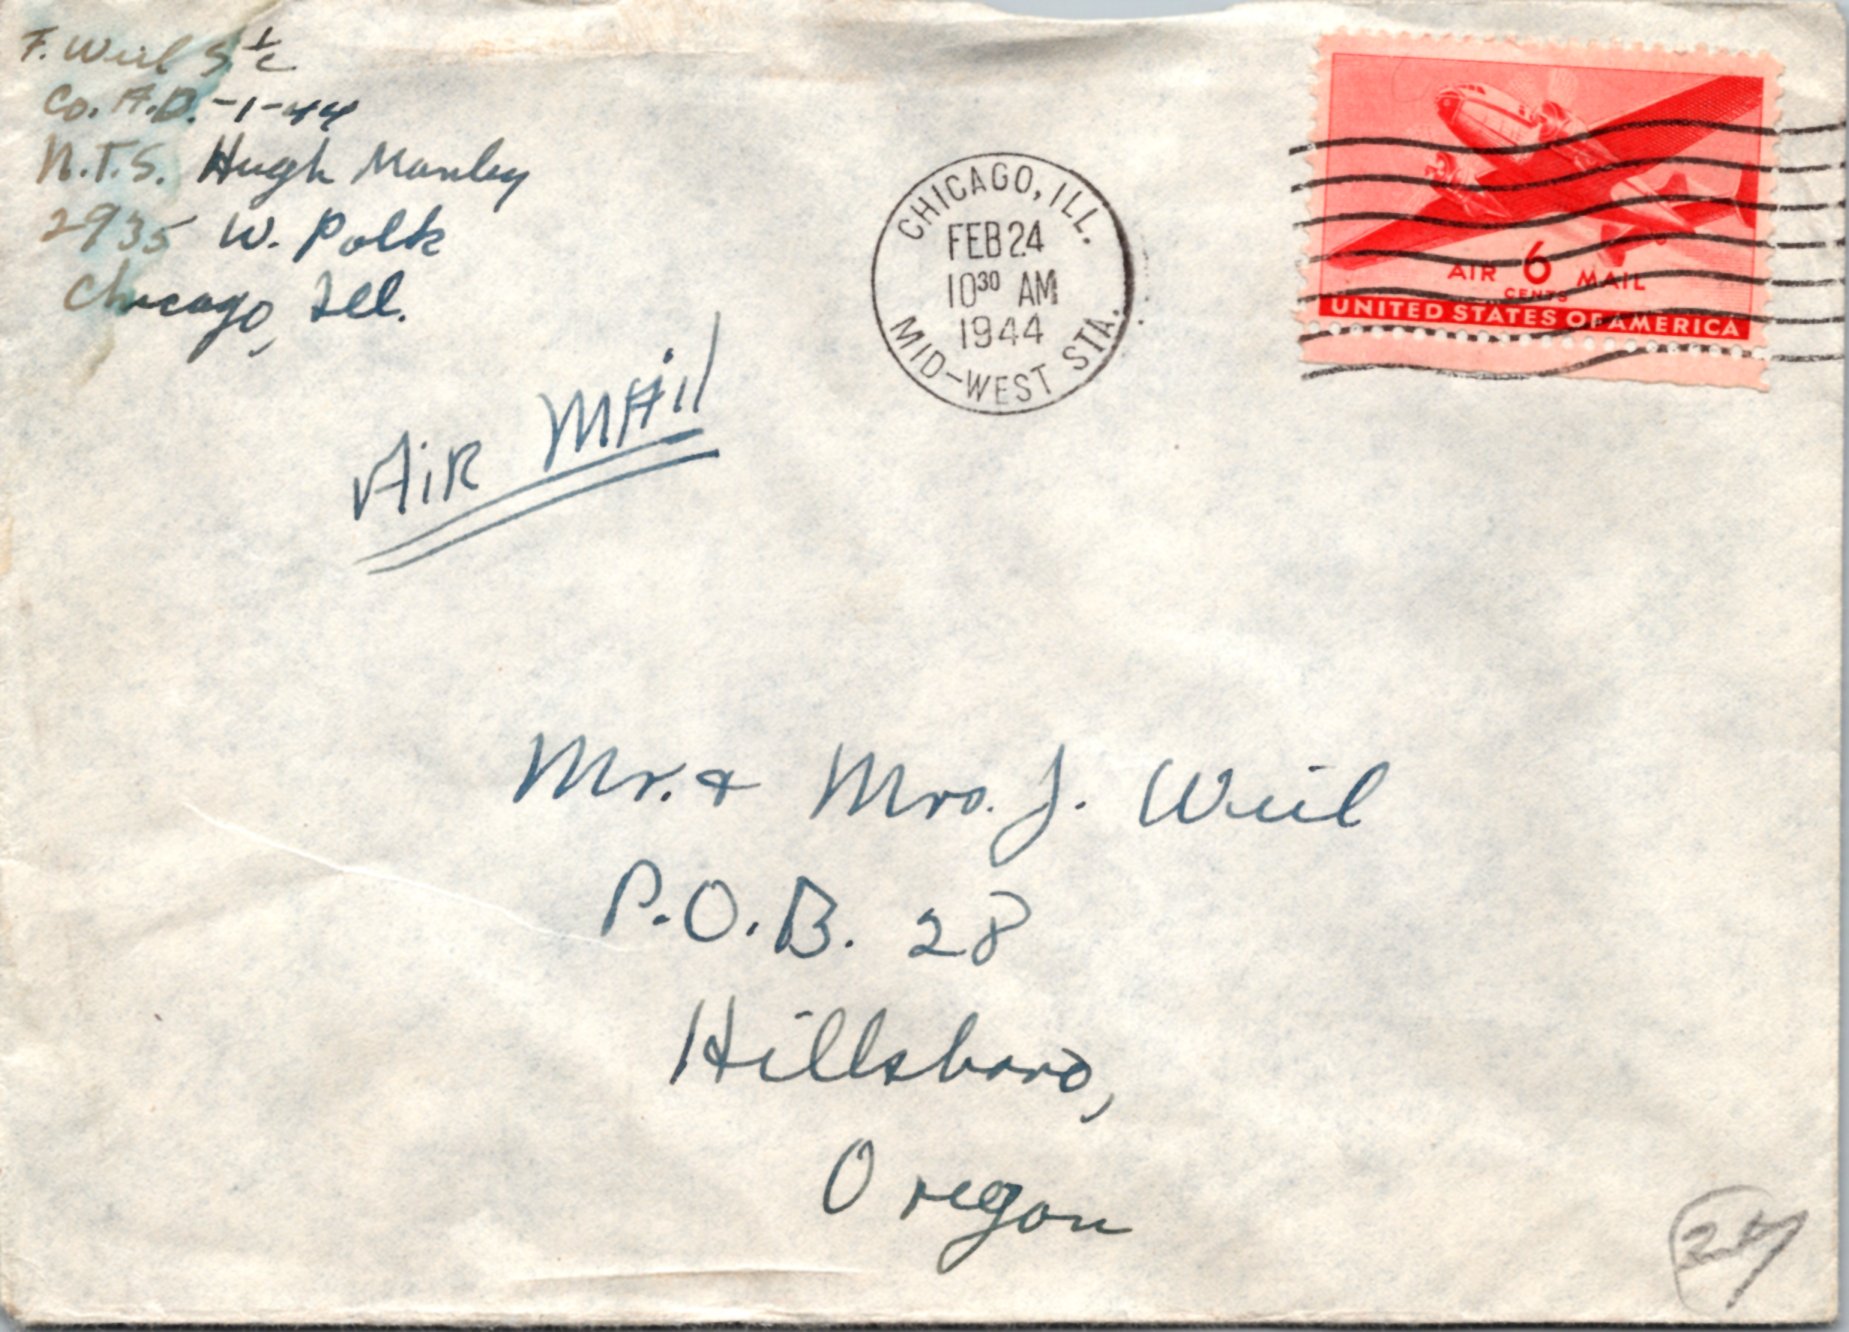 F. Weil S 1/c
Co. A.D.-1-44
N.T.S. Hugh Manley
2935 W. Polk
Chicago, Ill.
Air Mail
CHICAGO, ILL.
FEB 24
10 30 AM
1944
MID-WEST STA.
AIR 6 MAIL
CENTS
UNITED STATES OF AMERICA
Mr. & Mrs. J. Weil
P.O.B. 28
Hillsboro,
Oregon